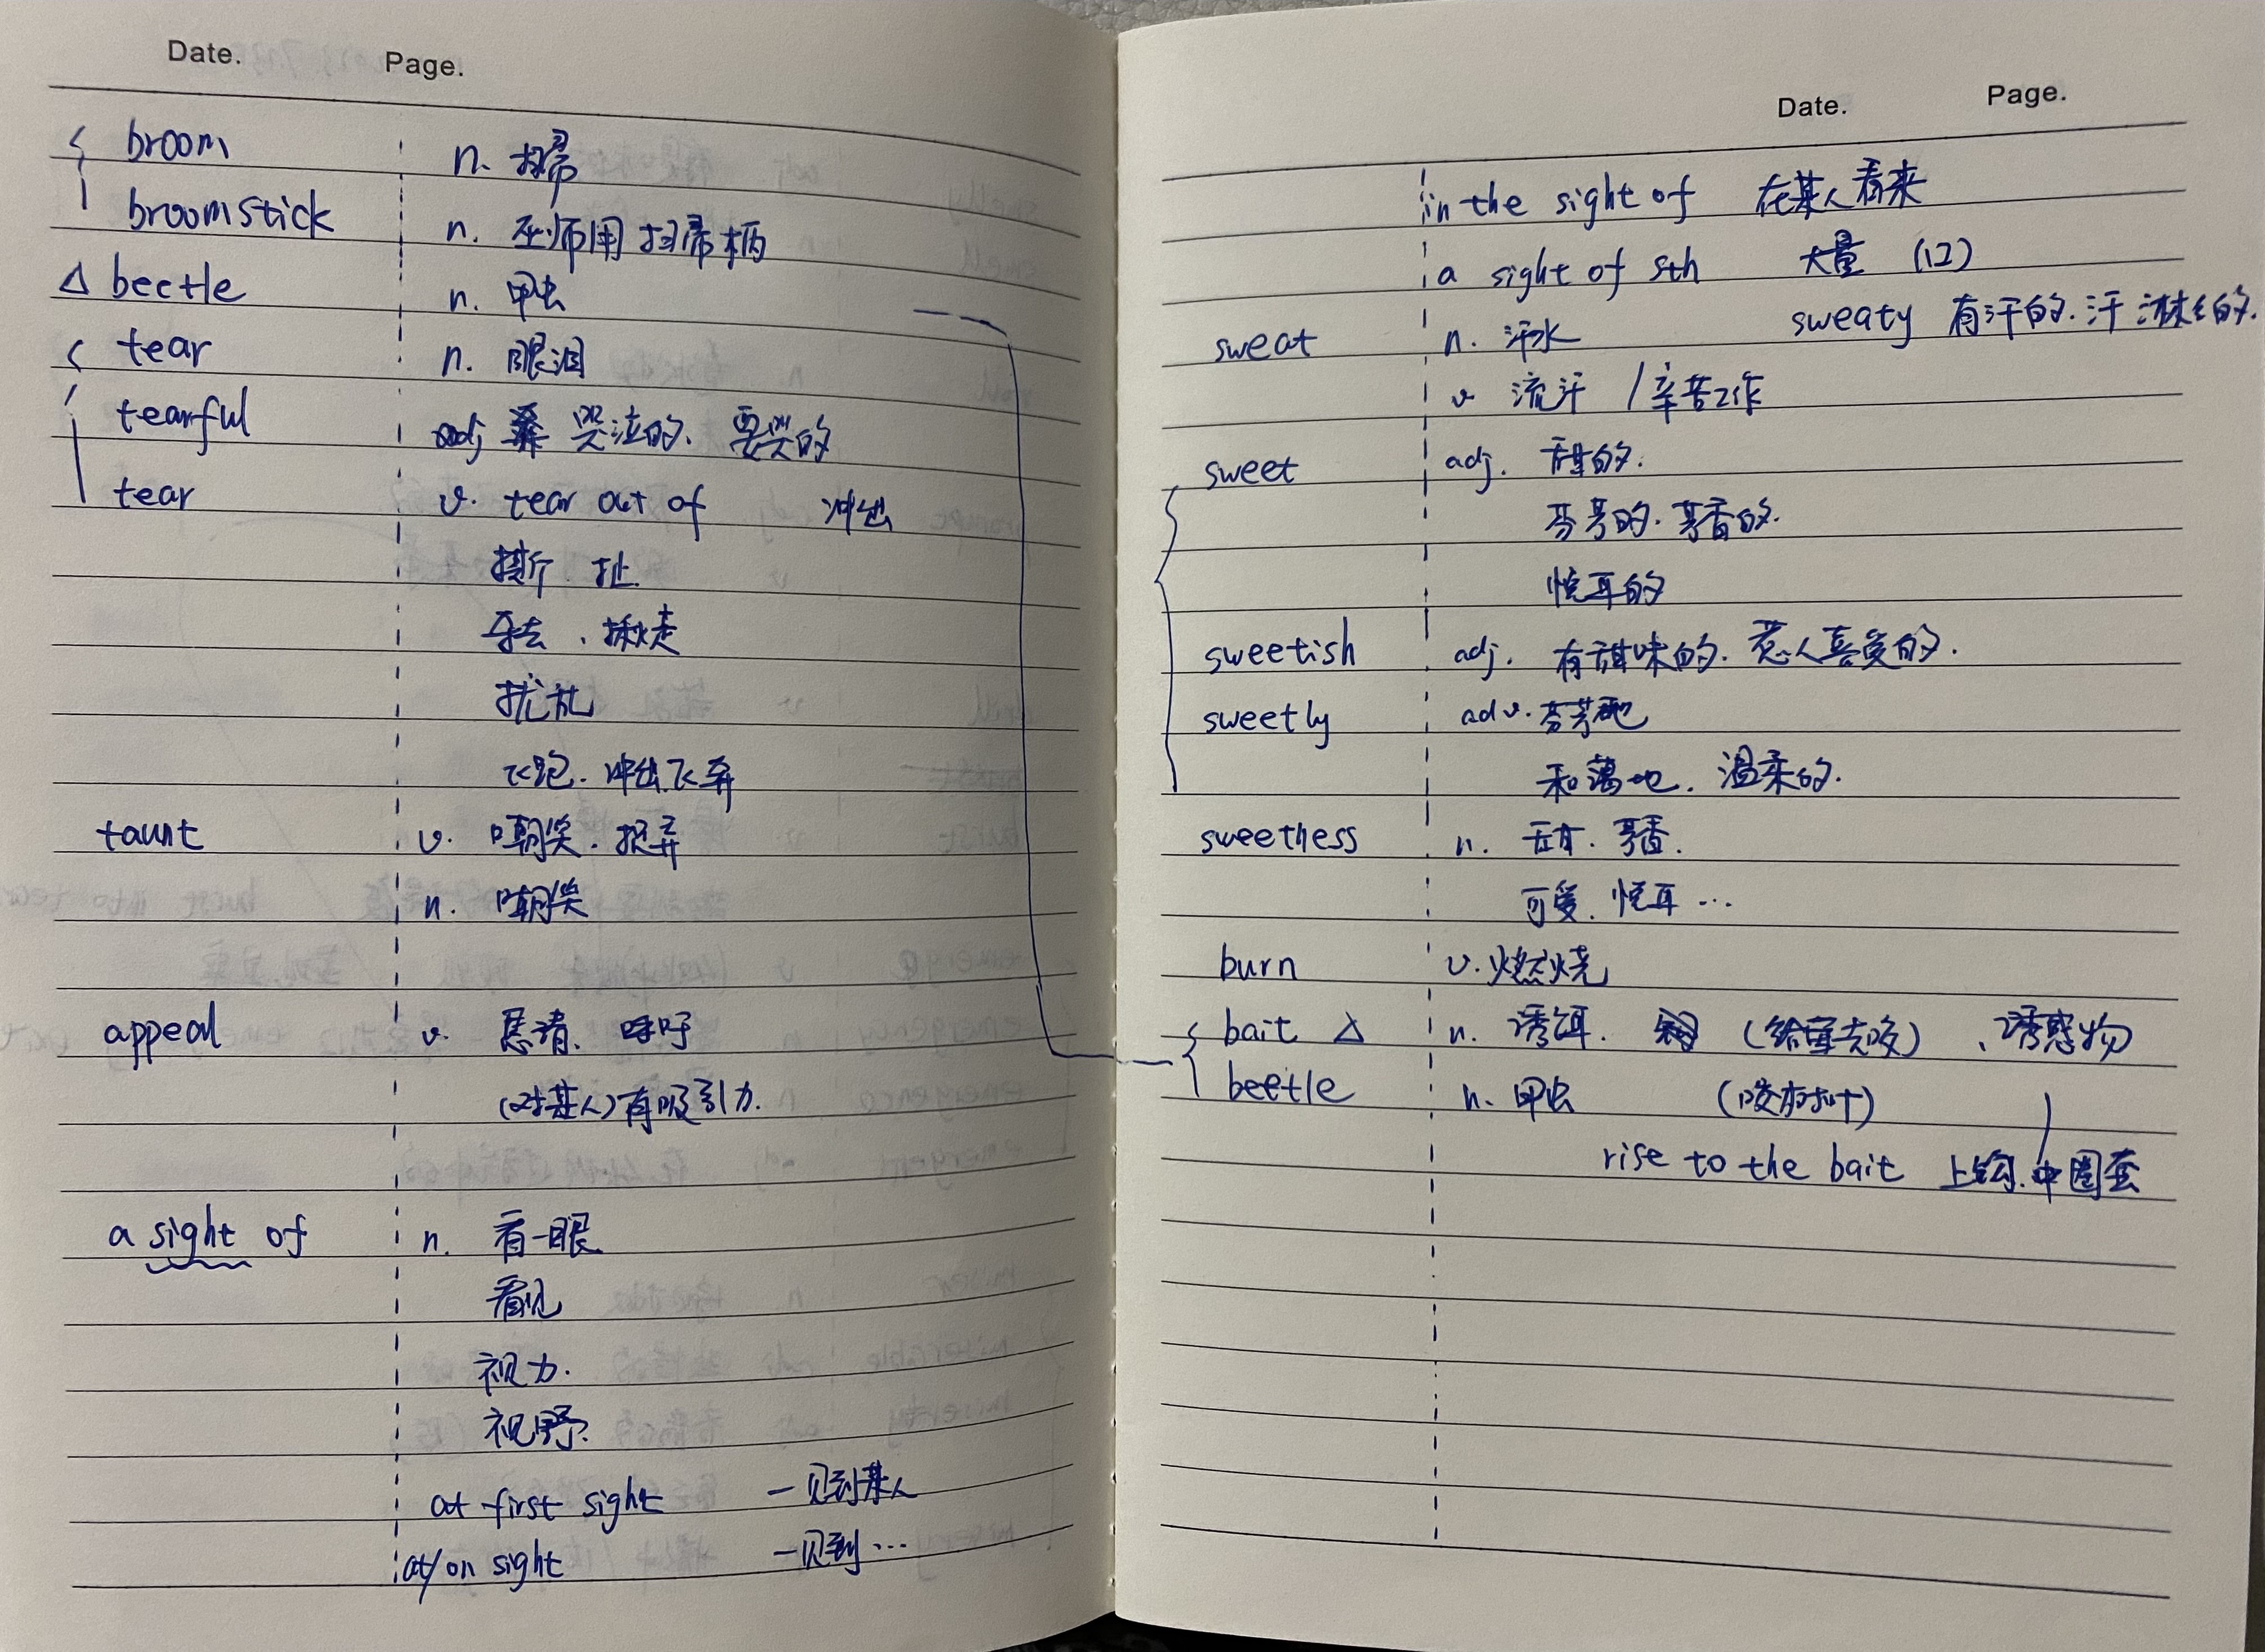 Date. Page.
broom n. 扫帚
broomstick n. 巫师用扫帚柄
△ beetle n. 甲虫
tear n. 眼泪
tearful adj 哭泣的、要哭的
tear v. tear out of 冲出
撕 扯.
夺去、揪走
扰乱
飞跑. 冲出飞奔
taunt v. 嘲笑. 捉弄
n. 嘲笑
appeal v. 恳请、呼吁
(对某人)有吸引力.
a sight of n. 看一眼
看见
视力.
视野.
at first sight 一见到某人
at/on sight 一见到…
Date. Page.
in the sight of 在某人看来
a sight of sth 大量 (口)
sweat n. 汗水 sweaty 有汗的. 汗淋淋的.
v 流汗 / 辛苦工作
sweet adj. 甜的.
芬芳的. 芳香的.
悦耳的
sweetish adj. 有甜味的. 惹人喜爱的.
sweetly adv. 芬芳地
和蔼地. 温柔的.
sweetness n. 甜. 芳香.
可爱. 悦耳…
burn v. 燃烧
bait △ n. 诱饵. (给它去咬) 、诱惑物
beetle n. 甲虫 (咬树叶)
rise to the bait 上钩. 中圈套